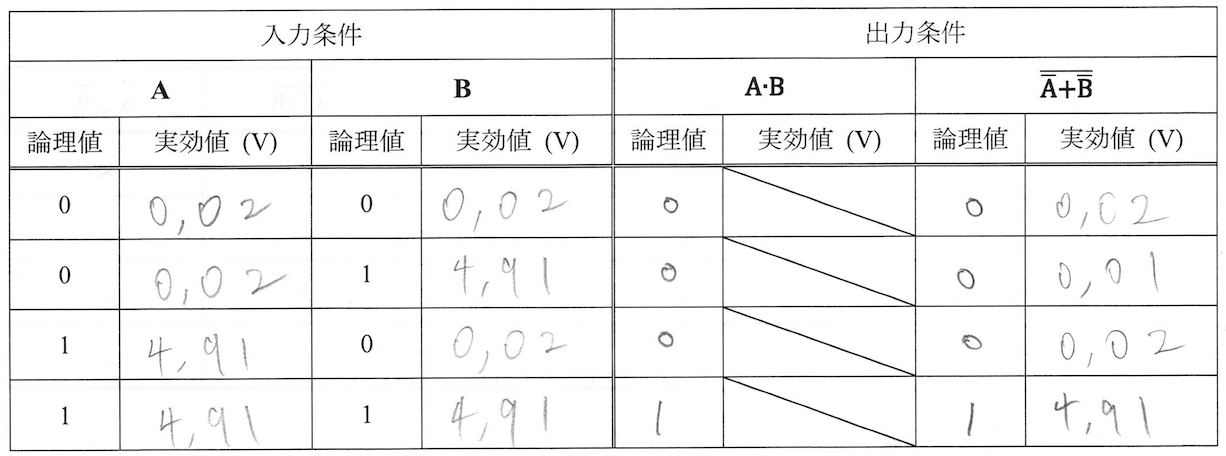 入力条件 出力条件
A B A·B A̿+B̿
論理値 実効値 (V) 論理値 実効値 (V) 論理値 実効値 (V) 論理値 実効値 (V)
0 0,02 0 0,02 0 0 0,02
0 0,02 1 4,91 0 0 0,01
1 4,91 0 0,02 0 0 0,02
1 4,91 1 4,91 1 1 4,91